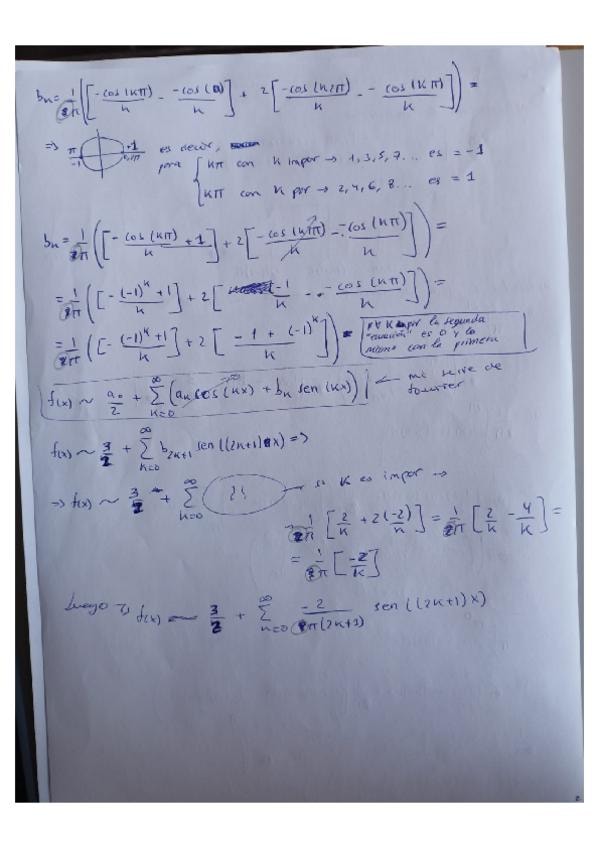 bₖ = 1/2π ([-cos(kπ)/k - -cos(0)/k] + 2[-cos(k2π)/k - -cos(kπ)/k]) =
=> π -1 +1 0,2π es decir,
para { kπ con k impar → 1,3,5,7... es = -1
kπ con k par → 2,4,6,8... es = 1
bₖ = 1/2π ([-cos(kπ)+1/k] + 2[-cos(kπ)/k - -cos(kπ)/k]) =
= 1/2π ([-(-1)^k+1/k] + 2[-1/k - -cos(kπ)/k]) =
= 1/2π ([-(-1)^k+1/k] + 2[-1+(-1)^k/k]) =
par la segunda
es 0 y lo
mismo con la primera
f(x) ~ a₀/2 + ∑_{k=0}^∞ (aₖ cos(kx) + bₖ sen(kx)) ← mi serie de
fourier
f(x) ~ 3/2 + ∑_{k=0}^∞ b_{2k+1} sen((2k+1)x) =>
=> f(x) ~ 3/2 + ∑_{k=0}^∞ → si k es impar →
1/2π [2/k + 2(-2)/k] = 1/2π [2/k - 4/k] =
= 1/2π [-2/k]
Luego → f(x) ~ 3/2 + ∑_{k=0}^∞ -2/2π(2k+1) sen((2k+1)x)